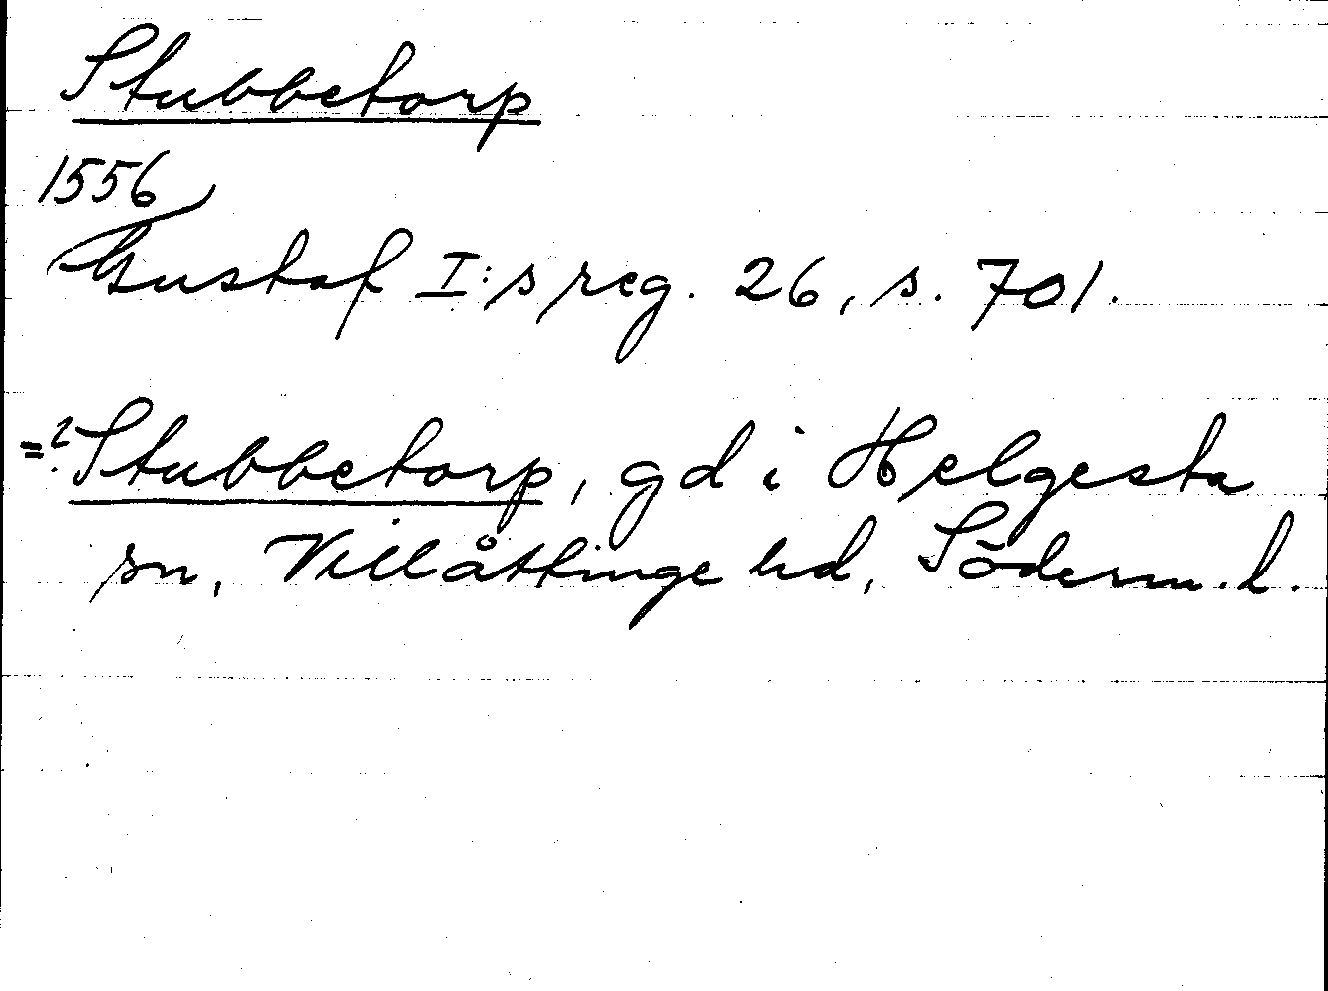 Stubbetorp
1556
Gustaf I:s reg. 26, s. 701.
=? Stubbetorp, gd i Helgesta
sn, Villåttinge hd, Söderm. l.